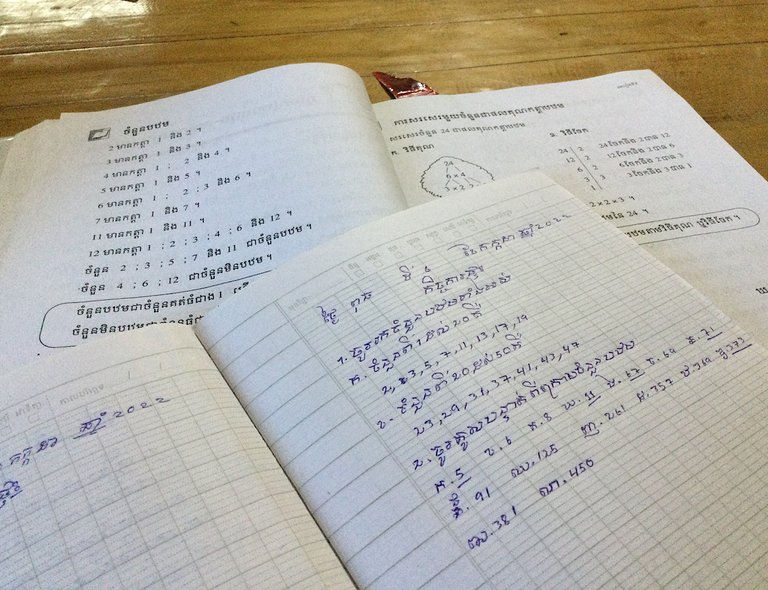 ចំនួនបឋម
2 មានកត្តា 1 និង 2 ។
3 មានកត្តា 1 និង 3 ។
4 មានកត្តា 1 ; 2 និង 4 ។
5 មានកត្តា 1 និង 5 ។
6 មានកត្តា 1 ; 2 ; 3 និង 6 ។
7 មានកត្តា 1 និង 7 ។
11 មានកត្តា 1 និង 11 ។
12 មានកត្តា 1 ; 2 ; 3 ; 4 ; 6 និង 12 ។
ចំនួន 2 ; 3 ; 5 ; 7 និង 11 ជាចំនួនបឋម ។
ចំនួន 4 ; 6 ; 12 ជាចំនួនមិនបឋម ។
ចំនួនបឋមជាចំនួនគត់ធំជាង 1
ចំនួនមិនបឋមជាចំនួន
ការសរសេរមួយចំនួនជាផលគុណកត្តាបឋម
សរសេរចំនួន 24 ជាផលគុណកត្តាបឋម
ក. វិធីគុណ
24
6 × 4
3 × 2
ខ. វិធីចែក
24 2 24 ចែកនឹង 2 បាន 12
12 2 12 ចែកនឹង 2 បាន 6
6 2 6 ចែកនឹង 2 បាន 3
3 3 3 ចែកនឹង 3 បាន 1
1
2 × 2 × 3 ។
នៃ 24 ។
តាមវិធីគុណ ឬវិធីចែក ។
កក្កដា ឆ្នាំ 2022
ថ្ងៃ ពុធ ទី 6 ខែ កក្កដា ឆ្នាំ 2022
កិច្ចការផ្ទះ
1. ចូររកចំនួនបឋមទាំងអស់
ក. ចំនួនពី 1 ដល់ 20 គឺ
2, 3, 5, 7, 11, 13, 17, 19
ខ. ចំនួនពី 20 ដល់ 50 គឺ
23, 29, 31, 37, 41, 43, 47
2. ចូរគូសបន្ទាត់ពីក្រោមចំនួនបឋម
ក. 5 ខ. 6 គ. 8 ឃ. 11 ង. 67 ច. 69 ឆ. 71
91 ឈ. 125 ញ. 261 ដ. 357 ឋ. 369 ឌ. 373
381 ណ. 450